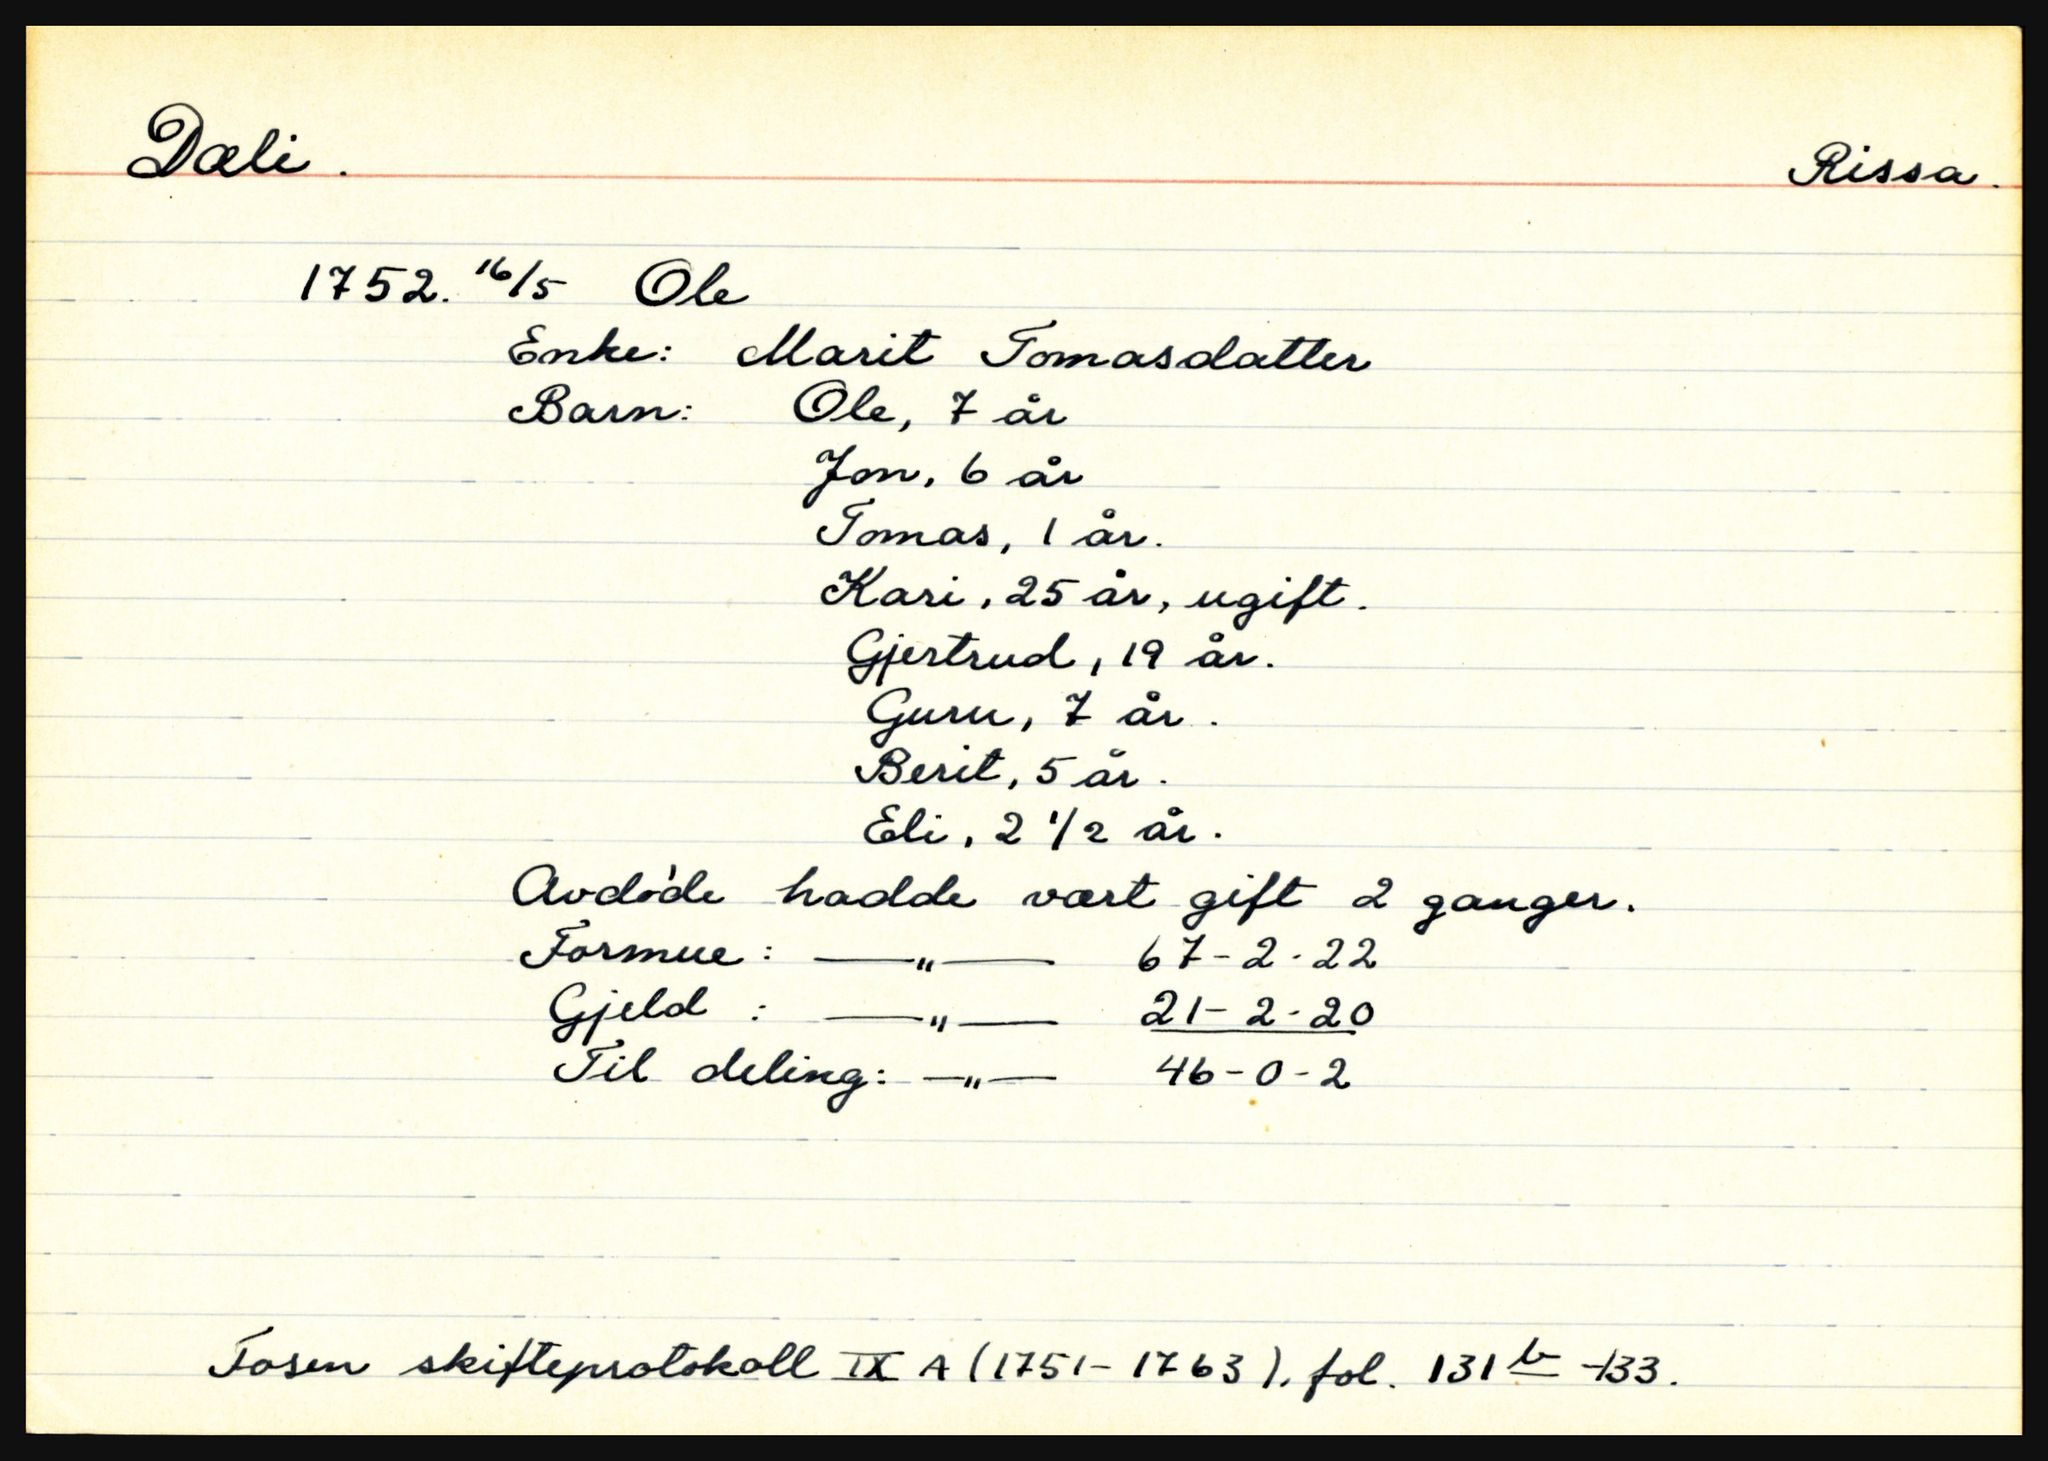 Dæli.
Rissa.
1752. 16/5 Ole
Enke: Marit Tomasdatter
Barn: Ole, 7 år
Jon, 6 år
Tomas, 1 år.
Kari, 25 år, ugift.
Gjertrud, 19 år.
Guru, 7 år.
Berit, 5 år.
Eli, 2 1/2 år.
Avdøde hadde vært gift 2 ganger.
Formue: —"— 67-2-22
Gjeld : —"— 21-2-20
Til deling: —"— 46-0-2
Fosen skifteprotokoll IX A (1751-1763), fol. 131 b -133.